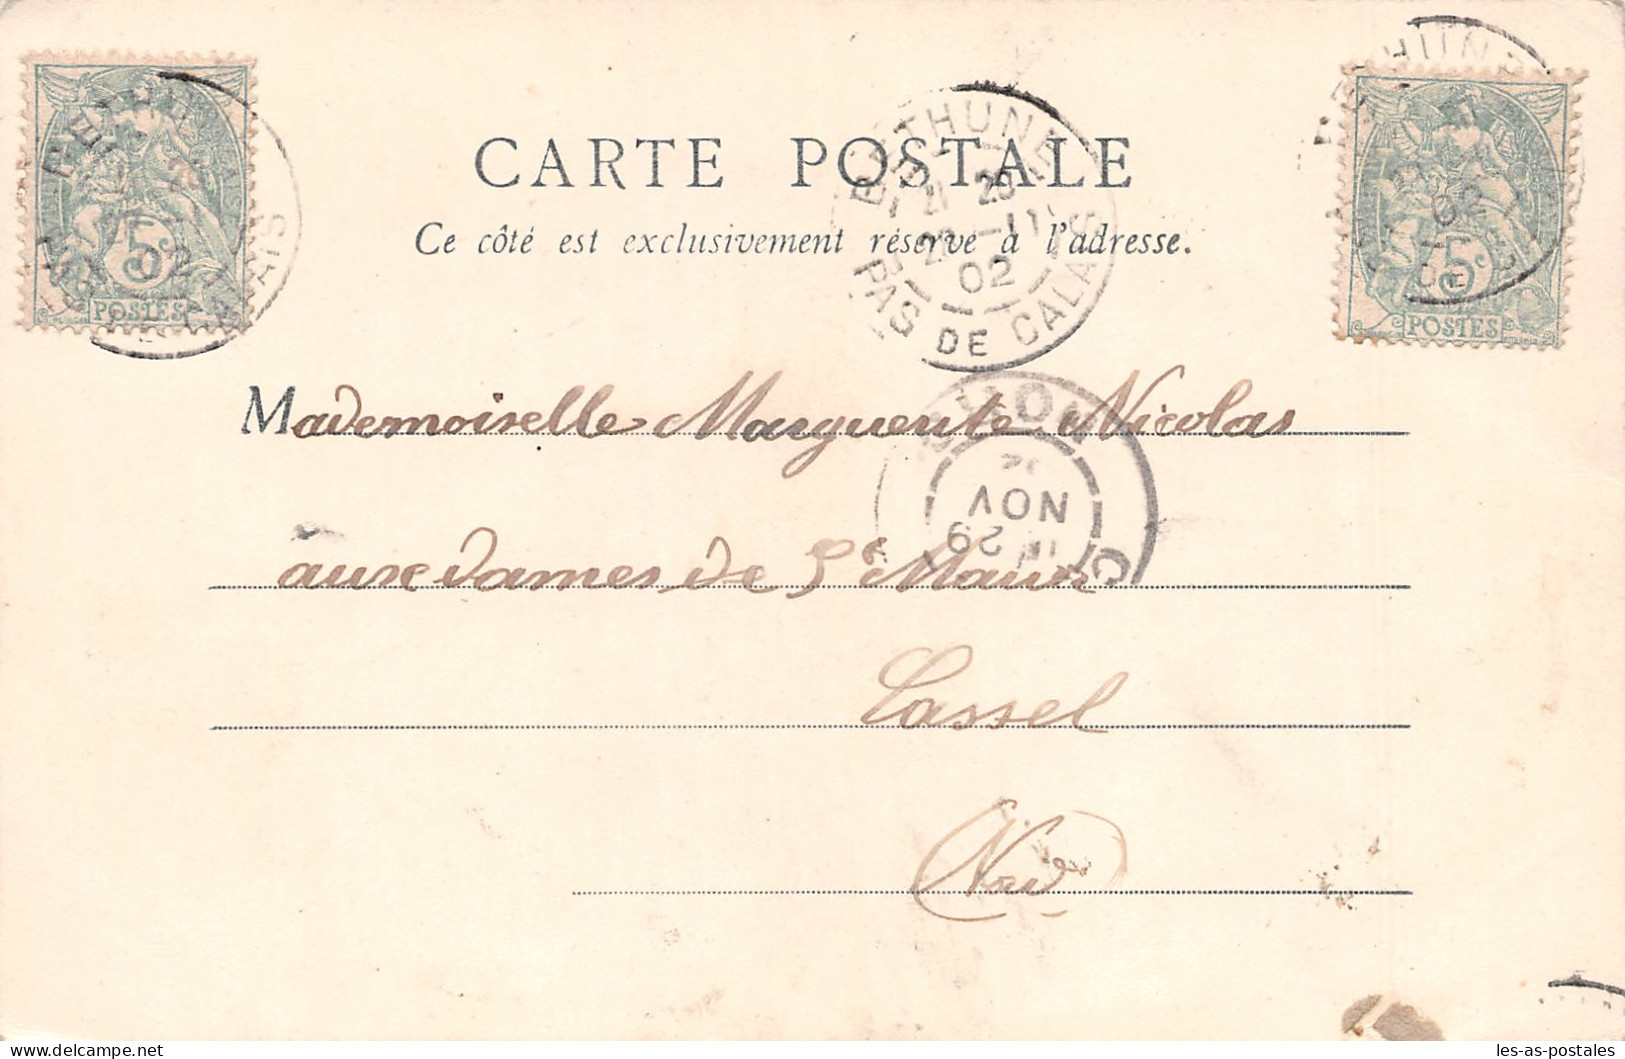 BETHUNE
CARTE POSTALE
Ce côté est exclusivement réservé à l'adresse.
BETHUNE
21 28
28 -11
02
PAS DE CALAIS
5c
POSTES
5c
POSTES
Mademoiselle Marguerite Nicolas
NOV
29
aux dames de St Maur
Cassel
Nord
les-as-postales